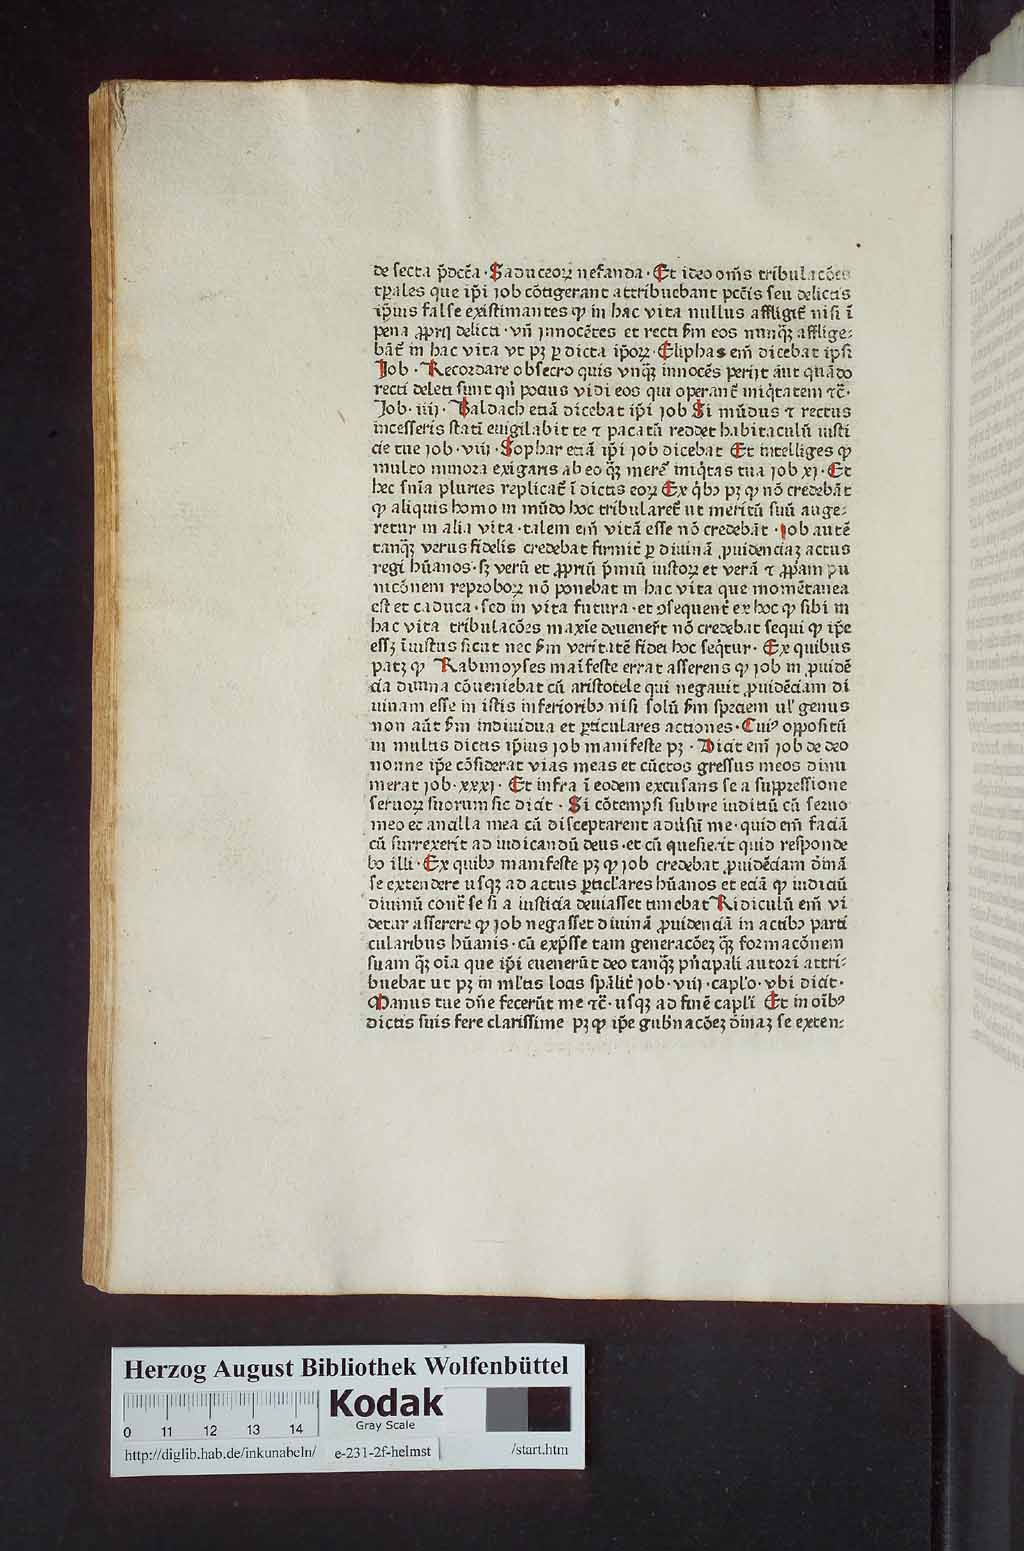 de secta p̄dcc̄a · Saduceoꝝ nefanda · Et ideo om̄s tribulacōes
tꝑales que ip̄i Job cōtigerant attribuebant pctīs seu delictis
ip̄ius false existimantes ꝙ in hac vita nullus affligit̄ nisi ī
pena ꝓprij delicti · vn̄ innocētes et recti ẜm eos nunqꝫ afflige⸗
bāt̄ in hac vita vt pꝫ ꝑ dicta ip̄oꝝ · Eliphas em̄ dicebat ipsi
Job · Recordare obsecro quis vnqꝫ innocēs perijt aut quādo
recti deleti sunt qn̄ pocius vidi eos qui operant̄ iniq̇tatem ⁊c̄ ·
Job · iiij · Baldach etiā dicebat ip̄i iob Si mūdus ⁊ rectus
incesseris statī euigilabit te ⁊ pacatū reddet habitaculū iusti
cie tue iob · viij · Sophar etiā ip̄i iob dicebat Et intelliges ꝙ
multo minora exigaris ab eo qꝫ meret̄ iniq̇tas tua iob xj · Et
hec sn̄ia pluries replicat̄ ī dictis eoꝝ Ex q̇bꝫ pꝫ ꝙ nō credebāt
ꝙ aliquis homo in mūdo hoc tribularet̄ ut meritū suū auge⸗
retur in alia vita · talem em̄ vitā esse nō credebāt · Job autē
tanqꝫ verus fidelis credebat firmit̄ ꝑ diuinā ꝓuidenciaꝫ actus
regi hūanos · sꝫ verū et ꝓpriū p̄miū iustoꝝ et verā ⁊ ꝓpam pu
nicōnem reproboꝝ nō ponebat in hac vita que momētanea
est et caduca · sed in vita futura · et ꝯsequent̄ ex hoc ꝙ sibi in
hac vita tribulacōes maxīe deuener̄t nō credebat sequi ꝙ ip̄e
essꝫ īiustus sicut nec ẜm veritatē fidei hoc seq̇tur · Ex quibus
patꝫ ꝙ Rabimoyses maīfeste errat asserens ꝙ iob in ꝓuidē
cia diuina cōueniebat cū aristotele qui negauit ꝓuidēciam di
uinam esse in istis inferioribꝫ nisi solū ẜm speciem ul' genus
non aūt ẜm indiuidua et ꝑticulares actiones · Cuiꝰ oppositū
in multis dictis ip̄ius iob manifeste pꝫ · Dicit em̄ iob de deo
nonne ip̄e cōsiderat vias meas et cūctos gressus meos dinu
merat iob · xxxj · Et infra ī eodem excusans se a suppressione
seruoꝝ suorum sic dicit · Si cōtempsi subire iuditiū cū seruo
meo et ancilla mea cū disceptarent aduẜū me · quid em̄ faciā
cū surrexerit ad iudicandū deus · et cū quesierit quid responde
bo illi · Ex quibꝫ manifeste pꝫ ꝙ iob credebat ꝓuidēciam d̄inā
se extendere usqꝫ ad actus ꝑticl'ares hūanos et eciā ꝙ iudiciū
diuinū cont̄ se si a iusticia deuiasset timebat Ridiculū em̄ vi
detur asserere ꝙ iob negasset diuinā ꝓuidenciā in actibꝫ parti
cularibus hūanis · cū exp̄sse tam generacōeꝫ qꝫ formacōnem
suam qꝫ oīa que ip̄i euenerūt deo tanqꝫ pn̄cipali autori attri⸗
buebat ut pꝫ in ml'tis locis sp̄alit̄ iob · viij · capl'o · vbi dicit ·
Manus tue dn̄e fecerūt me ⁊c̄ · usqꝫ ad finē capl'i Et in oībꝫ
dictis suis fere clarissime pꝫ ꝙ ip̄e gub̄nacōeꝫ d̄inaꝫ se exten⸗
Herzog August Bibliothek Wolfenbüttel
0 11 12 13 14
Kodak
Gray Scale
http://diglib.hab.de/inkunabeln/ e-231-2f-helmst /start.htm